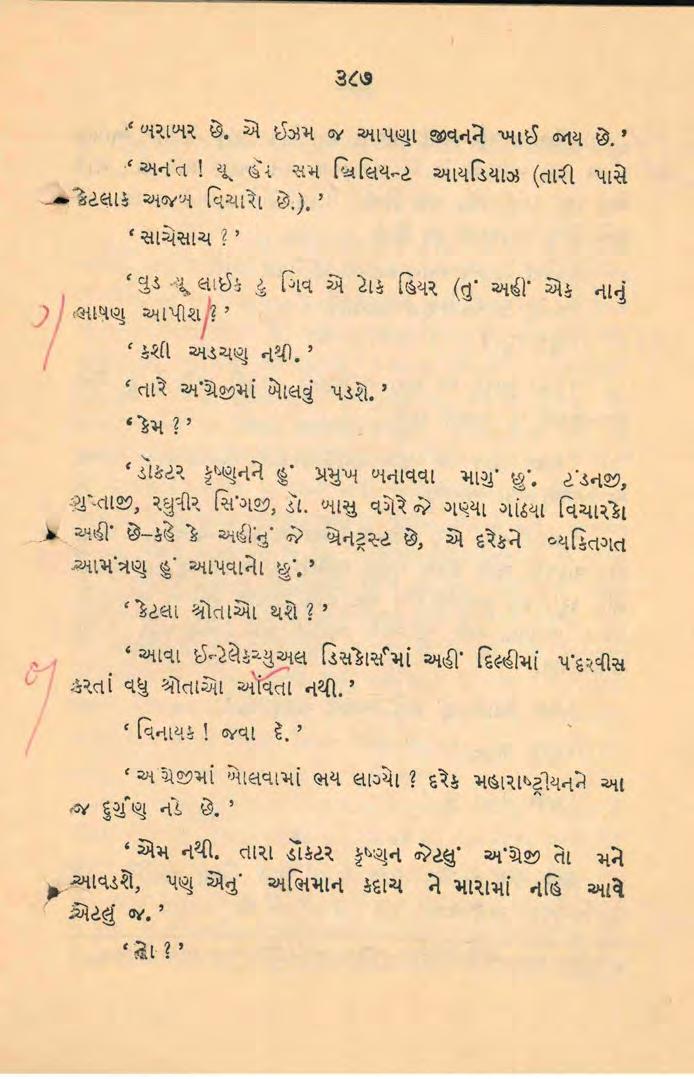 ૩૮૭
‘બરાબર છે. એ ઈઝમ જ આપણા જીવનને ખાઈ જાય છે.’
‘અનંત ! યૂ હૅવ સમ બ્રિલિયન્ટ આયડિયાઝ (તારી પાસે
કેટલાક અજબ વિચારો છે.). ’
‘સાચેસાચ ?’
‘વુડ યૂ લાઈક ટુ ગિવ એ ટોક હિયર (તું અહીં એક નાનું
ભાષણ આપીશ ?’
‘કશી અડચણ નથી.’
‘તારે અંગ્રેજીમાં બોલવું પડશે.’
‘કેમ ?’
‘ડૉકટર કૃષ્ણનને હું પ્રમુખ બનાવવા માગું છું. ટંડનજી,
ગુપ્તાજી, રઘુવીર સિંગજી, ડૉ. બાસુ વગેરે જે ગણ્યા ગાંઠયા વિચારકો
અહીં છે–કહે કે અહીંનું જે બ્રેનટ્રસ્ટ છે, એ દરેકને વ્યકિતગત
આમંત્રણ હું આપવાનો છું.’
‘કેટલા શ્રોતાઓ થશે ?’
‘આવા ઈન્ટેલેકચ્યુઅલ ડિસકોર્સમાં અહીં દિલ્હીમાં પંદરવીસ
કરતાં વધુ શ્રોતાઓ આંવતા નથી.’
‘વિનાયક ! જવા દે.’
‘અંગ્રેજીમાં બોલવામાં ભય લાગ્યો ? દરેક મહારાષ્ટ્રીયનને આ
જ દુર્ગુણ નડે છે. ’
‘એમ નથી. તારા ડૉકટર કૃષ્ણન જેટલું અંગ્રેજી તો મને
આવડશે, પણ એનું અભિમાન કદાચ ને મારામાં નહિ આવે
એટલું જ.’
‘તો ?’